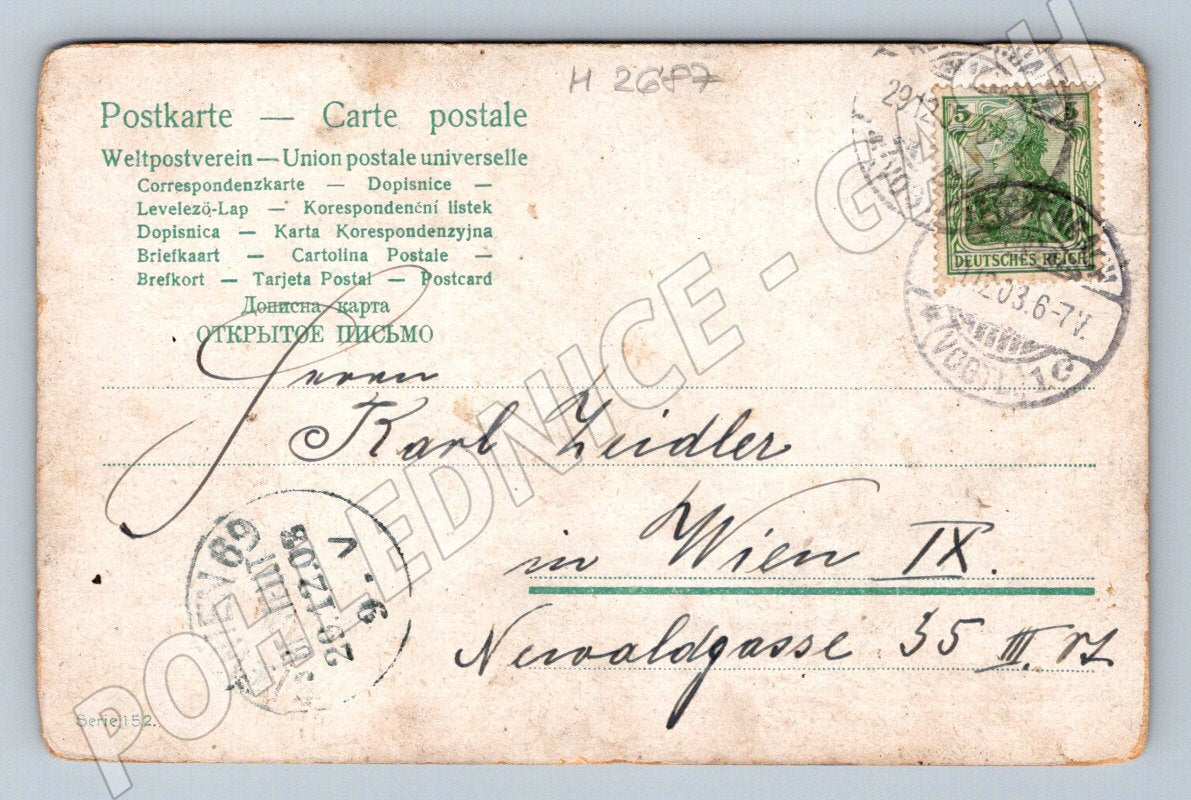 H 2687
Postkarte — Carte postale
Weltpostverein — Union postale universelle
Correspondenzkarte — Dopisnice —
Levelező-Lap — Korespondenční listek
Dopisnica — Karta Korespondenzyjna
Briefkaart — Cartolina Postale —
Brefkort — Tarjeta Postal — Postcard
Дописна карта
ОТКРЫТОЕ ПИСЬМО
5 5
DEUTSCHES REICH
29.12
03.6-7V.
(VOGTL.) 1C
Herrn
Karl Zeidler
in Wien IX.
35 III
WIEN 69
29.12.03
9-V
Serie 152.
POHLEDNICE